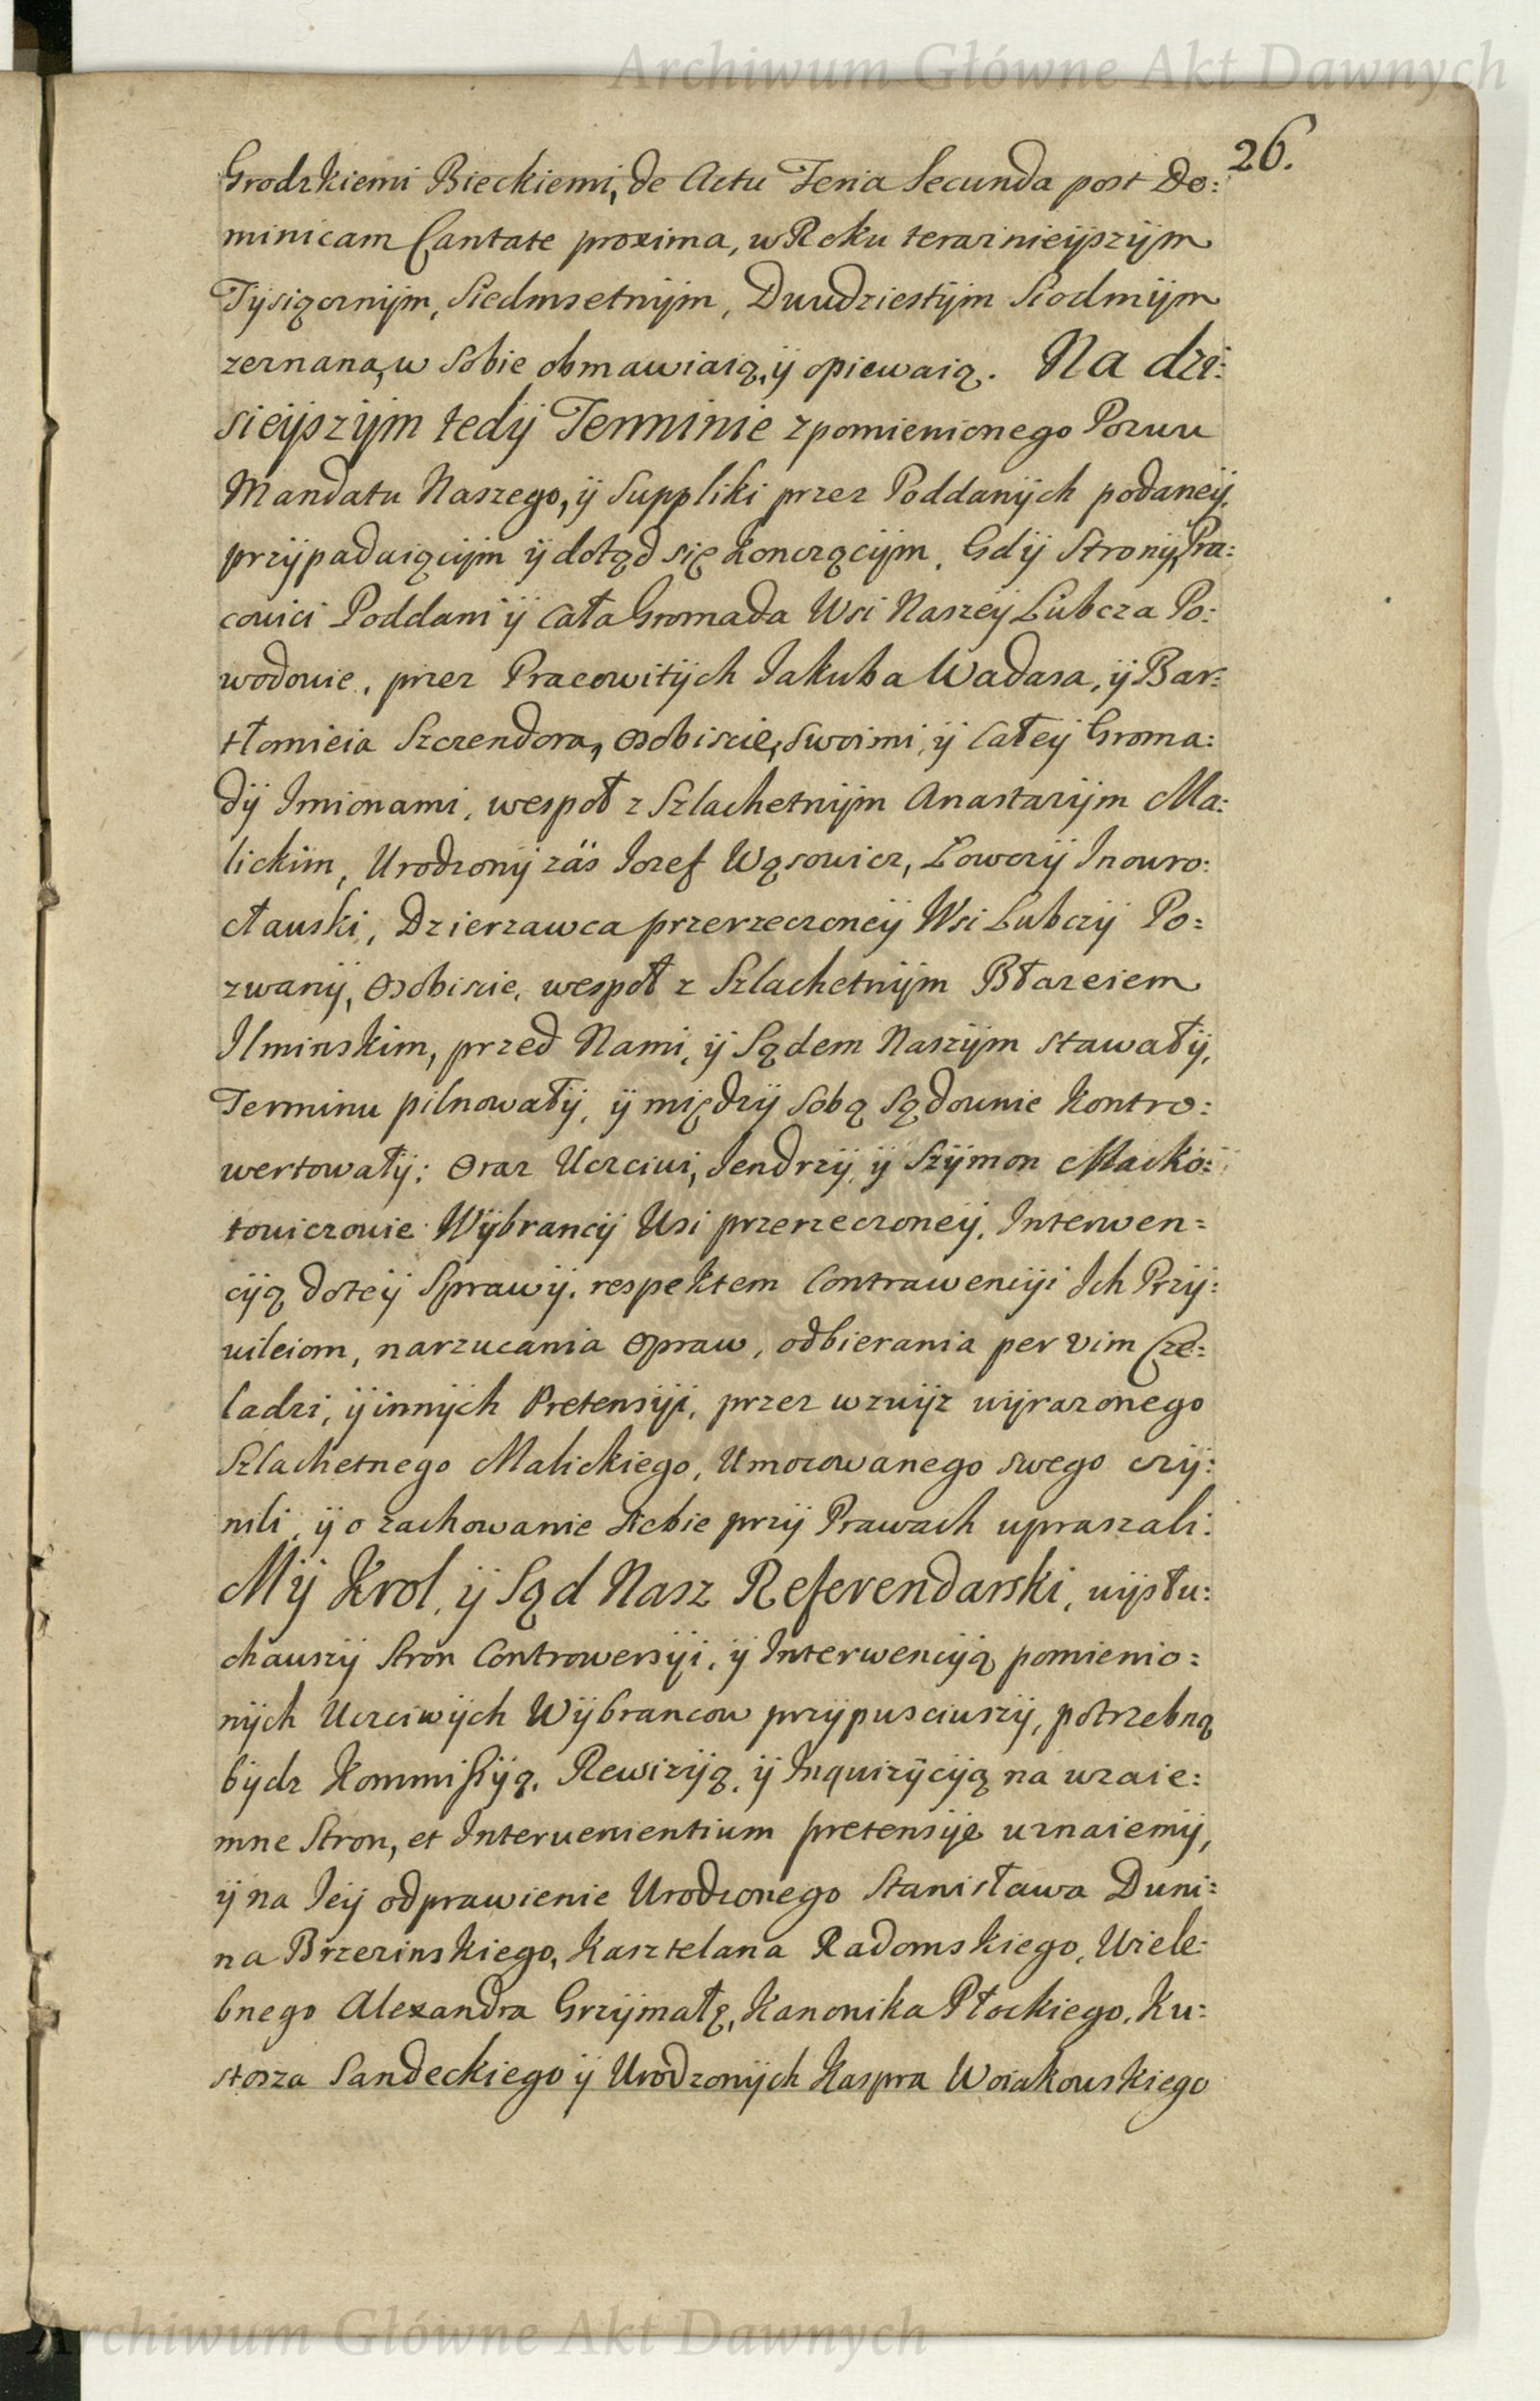 Archiwum Główne Akt Dawnych
26.
Grodzkiemi Bieckiemi, de Actu Feria Secunda post Do:
minicam Cantate proxima, w Roku teraznieÿszÿm
Tÿsiącznÿm, Siedmsetnÿm, Dwudziestÿm Siodmÿm
zeznana, w sobie obmawiaią, ÿ opiewaią. Na dzi:
sieÿszÿm tedÿ Terminie zpomienionego Pozwu
Mandatu Naszego, ÿ Suppliki przez Poddanÿch podaneÿ,
przÿpadaiącÿm ÿ dotąd się konczącÿm, Gdÿ Stronÿ, Pra:
cowici Poddani ÿ cała Gromada Wsi Naszeÿ Lubcza Po:
wodowie, przez Pracowitÿch Jakuba Wadasa, ÿ Bar:
tłomieia Szczendora, osobiscie, swoimi, ÿ całeÿ Groma:
dÿ Imionami, wespoł z Szlachetnÿm Anastazÿm Ma:
lickim, Urodzonÿ zäs Jozef Wąsowicz, Łowczÿ Inowro:
cławski, Dzierzawca przerzeczoneÿ Wsi Lubczÿ Po:
zwanÿ, osobiscie, wespoł z Szlachetnÿm Błazeiem
Ilminskim, przed Nami, ÿ Sądem Naszÿm stawałÿ,
Terminu pilnowałÿ, ÿ międzÿ sobą sądownie kontro:
wertowałÿ: oraz Uczciwi, Jendrzÿ, ÿ Szÿmon Macko:
towiczowie Wÿbrancÿ Wsi przerzeczoneÿ, Interwen=
cÿą doteÿ Sprawÿ, respektem Contrawencÿi Ich Przÿ:
wileiom, narzucania opraw, odbierania per vim Cze:
ladzi, ÿ innÿch Pretensÿi, przez wzwÿz wÿrazonego
Szlachetnego Malickiego, Umocowanego swego czÿ:
nili, ÿ o zachowanie siebie przÿ Prawach upraszali:
Mÿ Krol, ÿ Sąd Nasz Referendarski, wÿsłu:
chawszÿ Stron Controwersÿi, ÿ Interwencÿą pomienio:
nÿch Uczciwÿch Wÿbrancow przÿpusciwszÿ, potrzebną
bÿdz Kommissÿą, Rewizÿą, ÿ Inquizÿcÿą na wzaie:
mne Stron, et Intervenientium pretensÿe uznaiemÿ,
ÿ na Jeÿ odprawienie Urodzonego Stanisława Duni:
na Brzezinskiego, Kasztelana Radomskiego, Wiele:
bnego Alexandra Grzÿmałę, Kanonika Płockiego, Ku:
stosza Sandeckiego ÿ Urodzonÿch Kaspra Woiakowskiego
Archiwum Główne Akt Dawnych